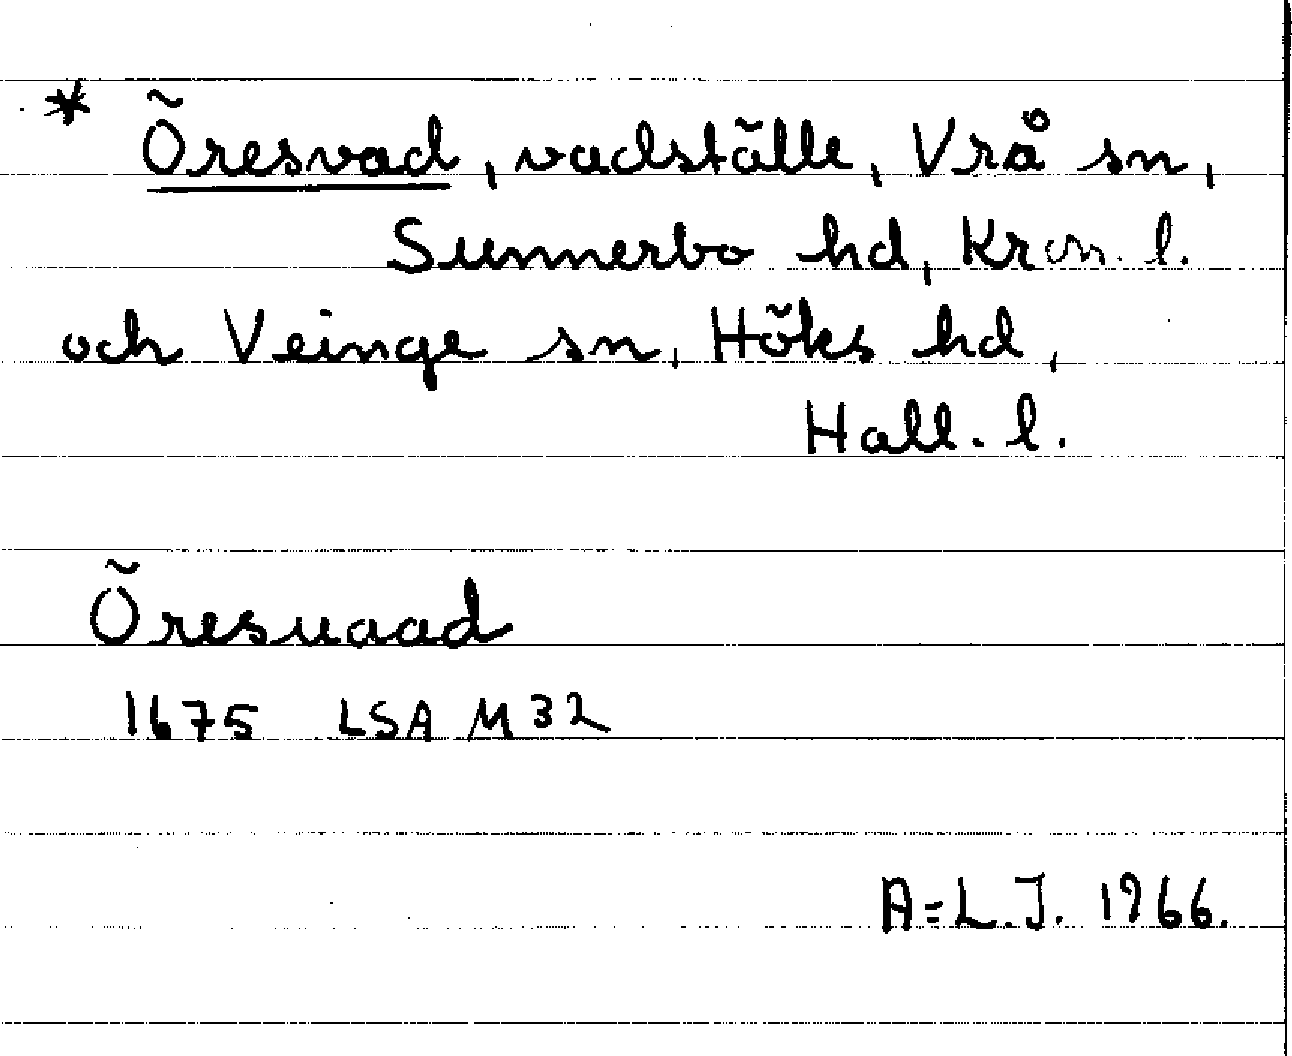 * Öresvad, vadställe, Vrå sn,
Sunnerbo hd, Kron. l.
och Veinge sn, Höks hd,
Hall. l.
Öresuaad
1675 LSA M32
A=L.J. 1966.